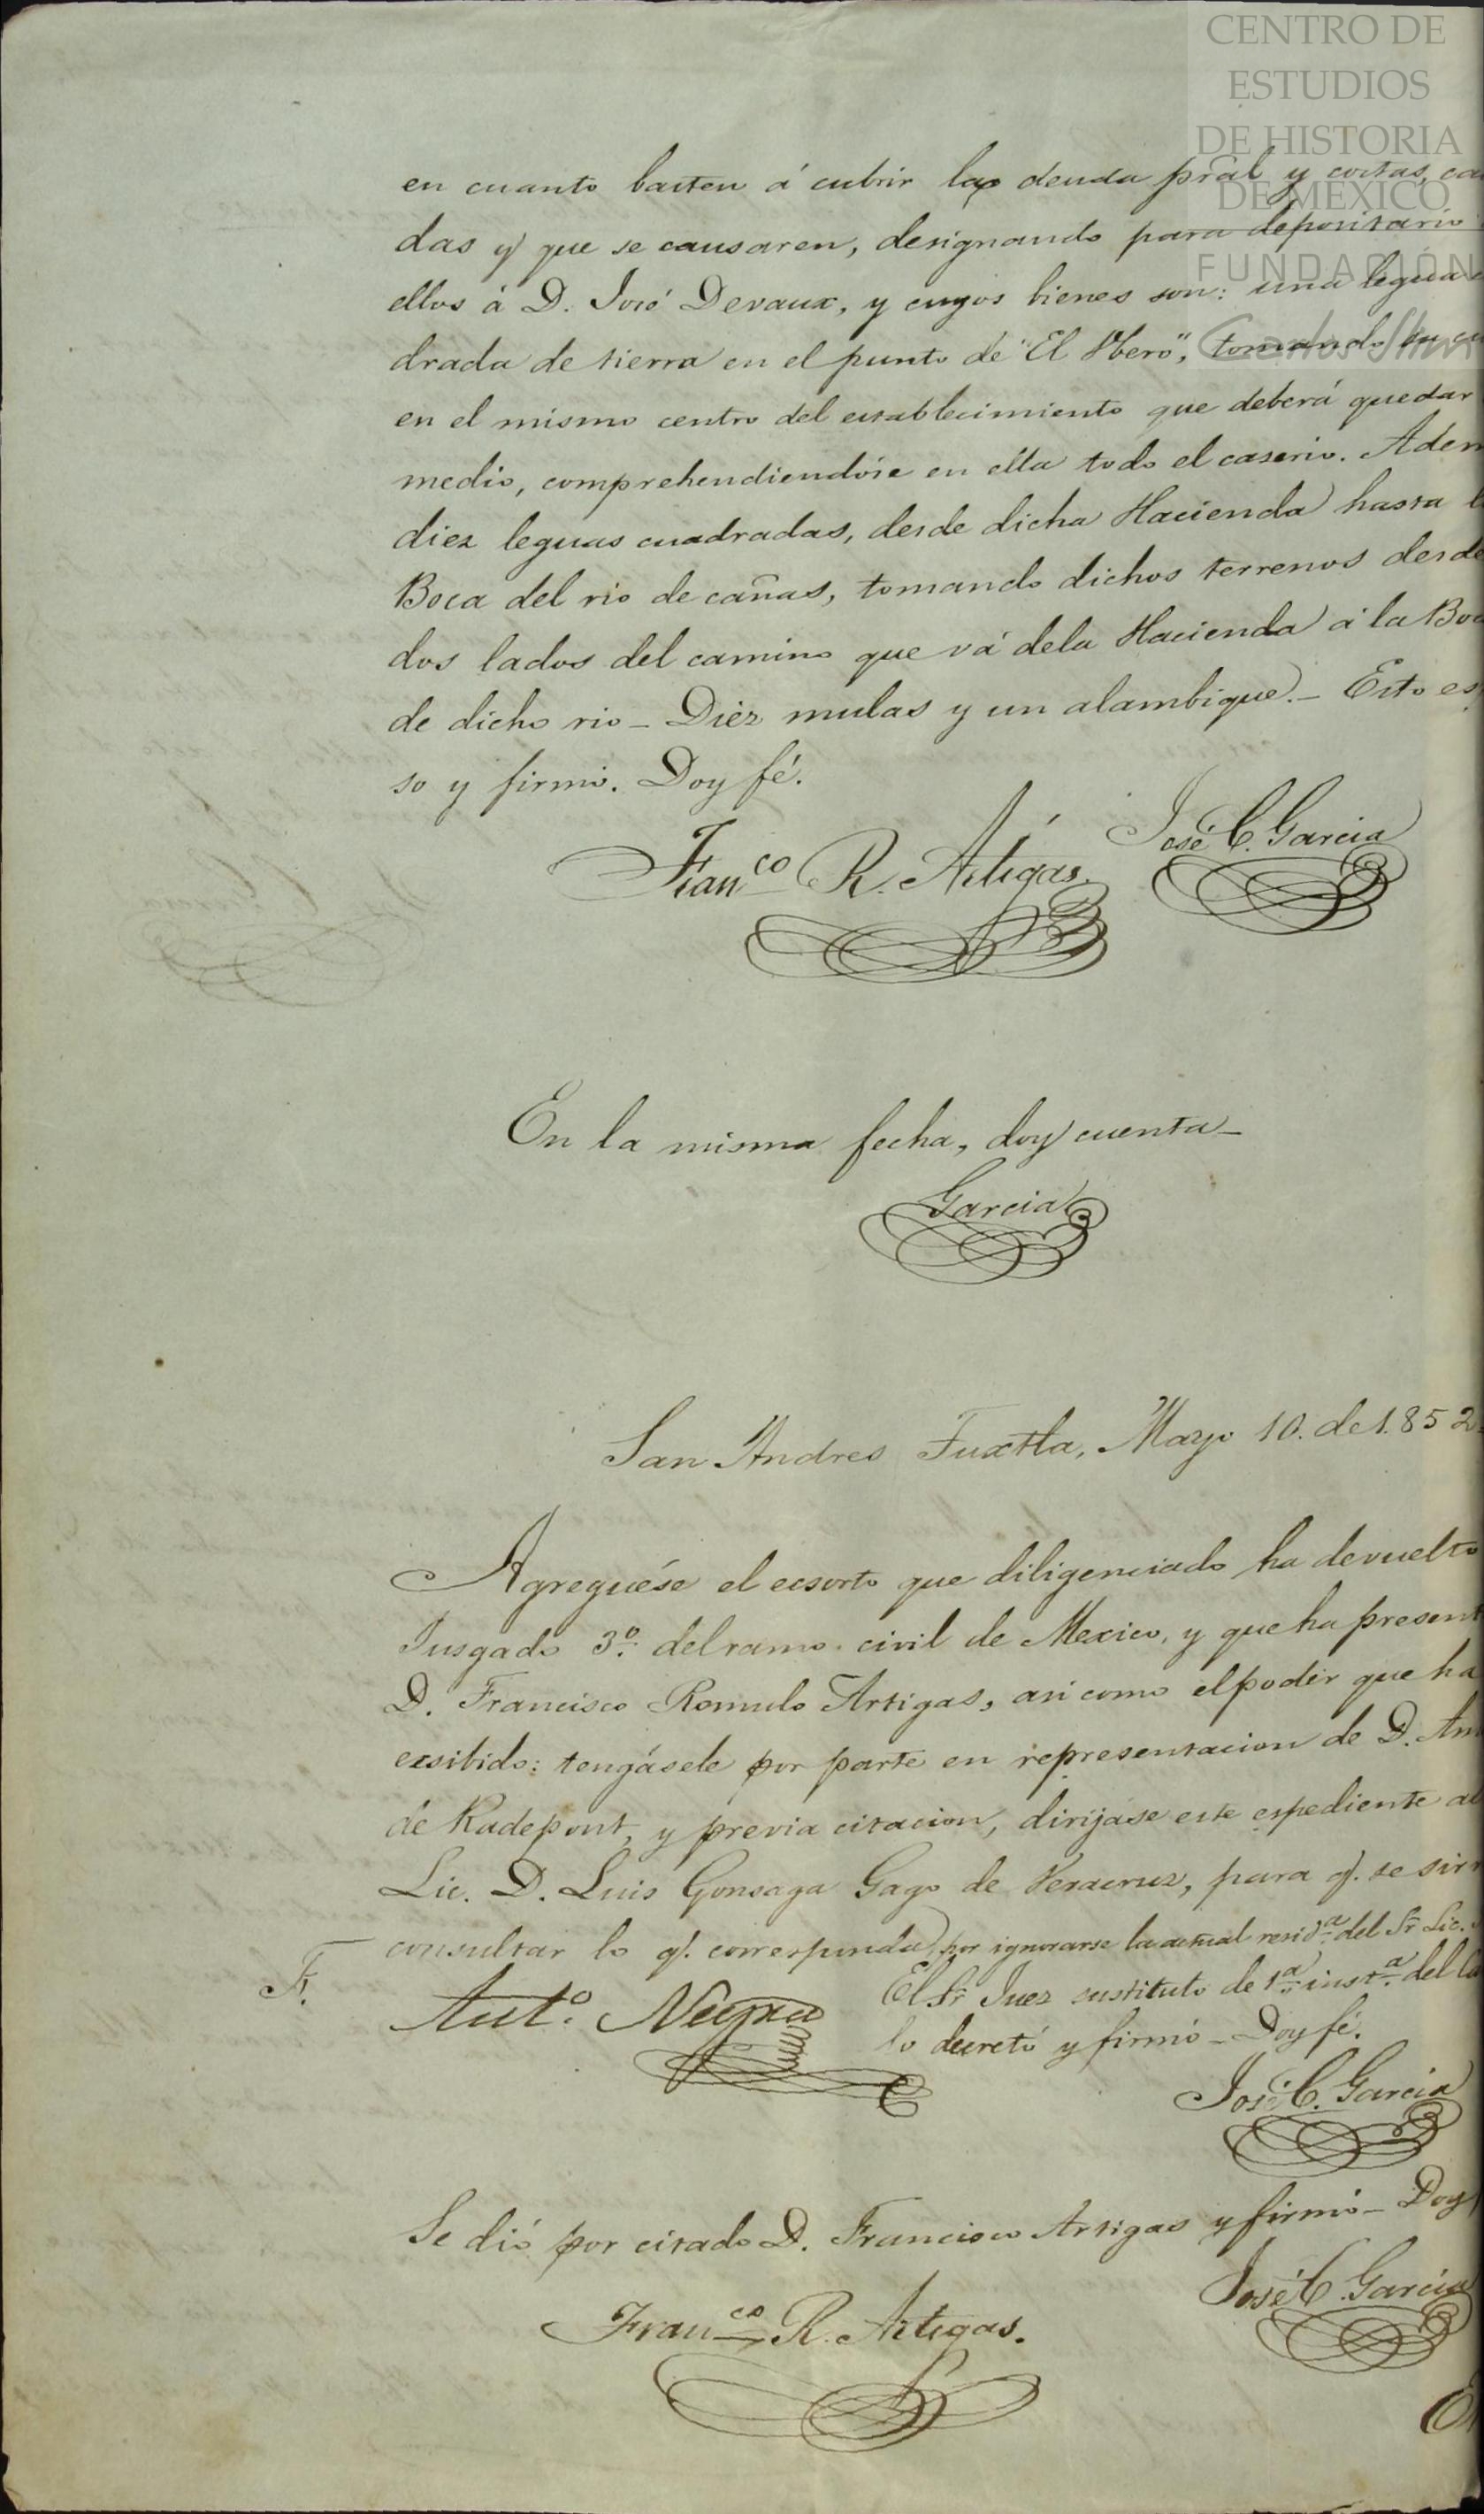 CENTRO DE
ESTUDIOS
DE HISTORIA
DE MÉXICO
FUNDACIÓN
Carlos Slim
en cuanto basten á cubrir la deuda pral y costas, cau
das y que se causaren, designando para depositario
ellos á D. José Devaux, y cuyos bienes son: una legua c
drada de tierra en el punto de "El Hero", tomando su cu
en el mismo centro del establecimiento que deberá quedar
medio, comprehendiendóse en ella todo el caserio. Adem
diez leguas cuadradas, desde dicha Hacienda hasta l
Boca del rio de cañas, tomando dichos terrenos desde
dos lados del camino que vá dela Hacienda á la Boc
de dicho rio _ Diez mulas y un alambique. _ Esto es
so y firmó. Doy fé.
José C. Garcia
Franco R. Artigas.
En la misma fecha, doy cuenta _
Garcia
San Andres Tuxtla, Mayo 10. de 1.852
Agreguése el ecsorto que diligenciado ha devuelto
Jusgado 3º. del ramo civil de Mexico, y que ha present
D. Francisco Romulo Artigas, asi como el poder que ha
ecsibido: tengásele por parte en representacion de D. Am
de Radepont, y previa citacion, dirijase este espediente al
Lic. D. Luis Gonsaga Gago de Veracruz, para q. se sirv
consultar lo q. corresponda, por ignorarse la actual resida. del Sr. Lic.
El Sr. Juez sustituto de 1a. insta. del
F.
Anto. Neyra
lo decretó y firmó _ Doy fé.
José C. Garcia
Se dió por citado D. Francisco Artigas y firmó _ Doy
José C. Garcia
Franco R. Artigas.